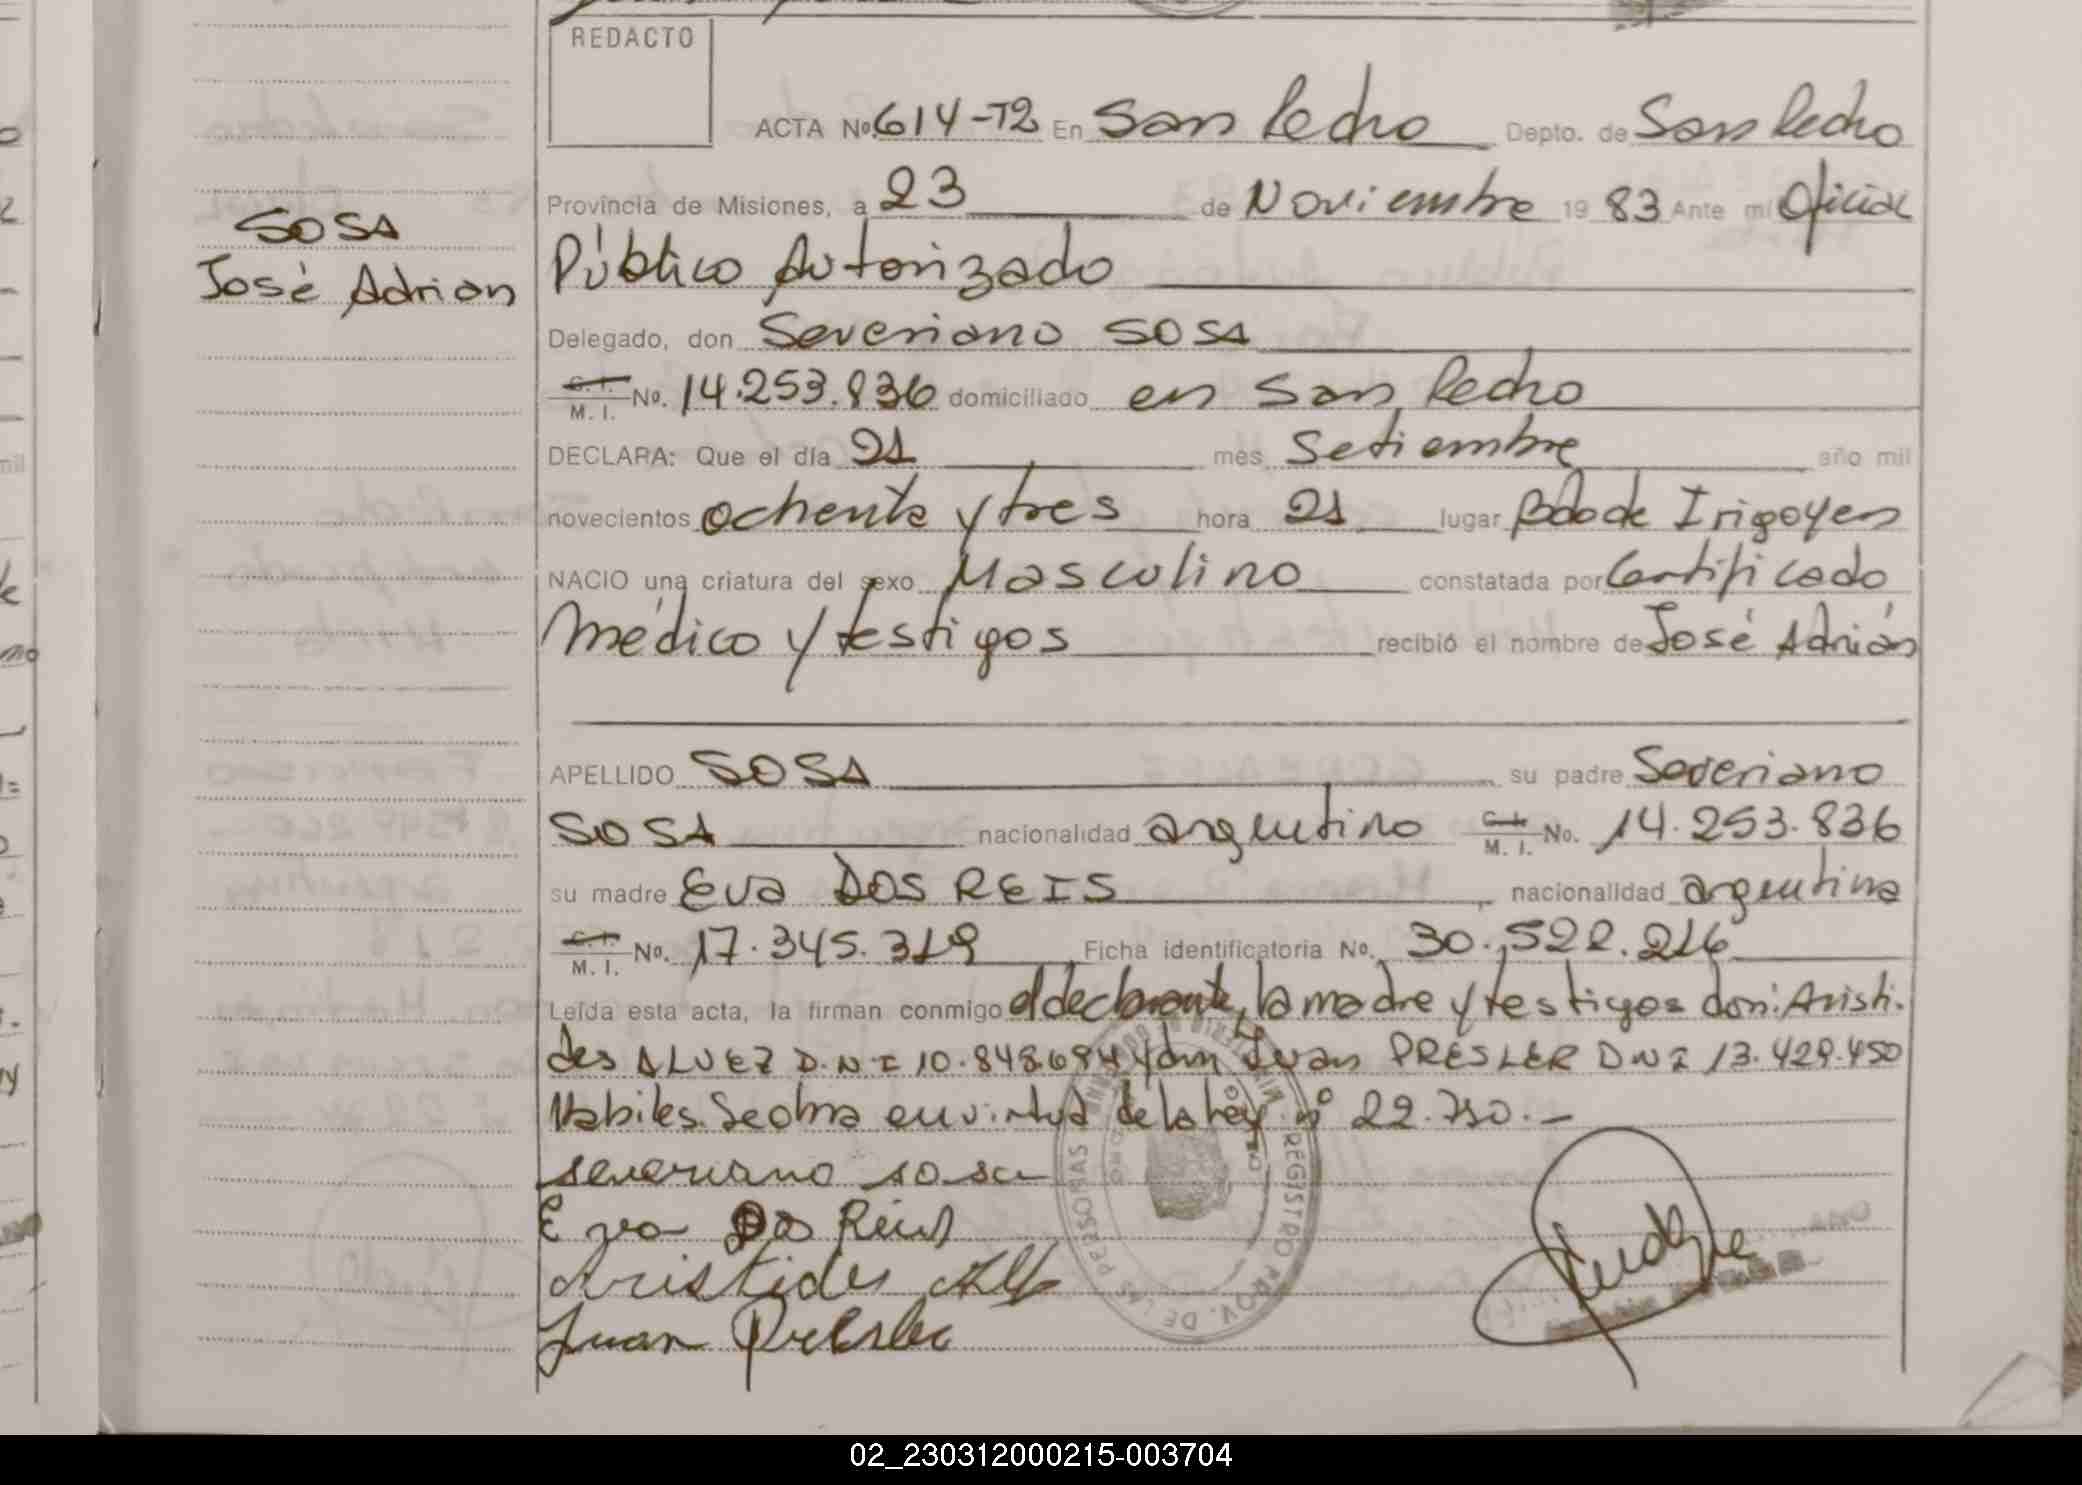 REDACTO
ACTA No. 614-T2 En San Pedro Depto. de San Pedro
Provincia de Misiones, a 23 de Noviembre 19 83 Ante mí Oficial
SOSA
José Adrian
Público Autorizado
Delegado, don Severiano SOSA
C. I. M. I. No. 14.253.836 domiciliado en San Pedro
DECLARA: Que el día 21 mes Setiembre año mil
novecientos ochenta y tres hora 21 lugar Bdo de Irigoyen
NACIO una criatura del sexo Masculino constatada por Certificado
Médico y testigos recibió el nombre de José Adrián
APELLIDO SOSA su padre Severiano
SOSA nacionalidad argentino C. I. M. I. No. 14.253.836
su madre Eva DOS REIS, nacionalidad argentina
C. I. M. I. No. 17.345.319 Ficha identificatoria No. 30.522.216
Leída esta acta, la firman conmigo el declarante, la madre y testigos don: Aristi-
des ALVEZ D.N.I 10.848.694 y don Juan PRESLER DNI 13.429.450
Habiles. Se obra en virtud de la ley nº 22.730.-
severiano sosa
Eva Dos Reis
Aristides
Juan Presler
REGISTRO PROV. DE LAS PERSONAS
02_230312000215-003704